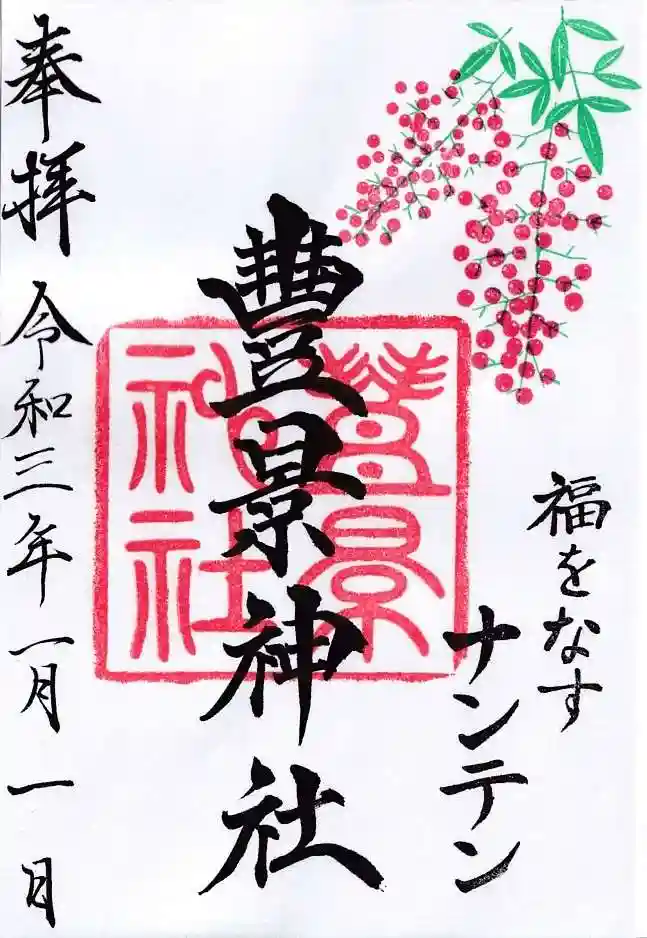 福をなす
ナンテン
豐景神社
豊景
神社
奉拝 令和三年一月一日